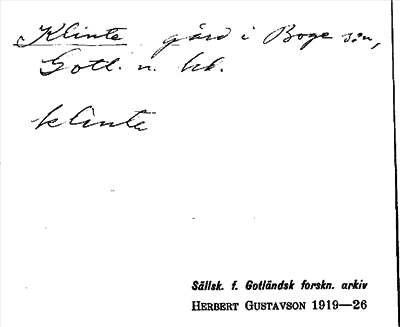 Klinte gård i Boge sn,
Gotl. n. hd.
klinte
Sällsk. f. Gotländsk forskn. arkiv
HERBERT GUSTAVSON 1919—26